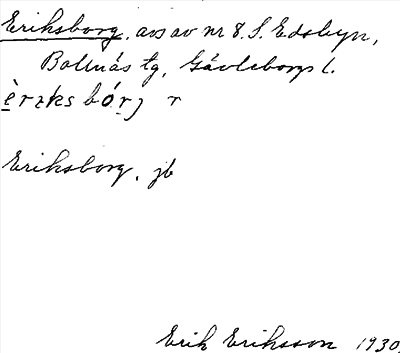 Eriksborg, avs av nr 8. S. Edsbyn,
Bollnäs tg, Gävleborgs l.
Eriksborg, jb
Erik Eriksson 1930.